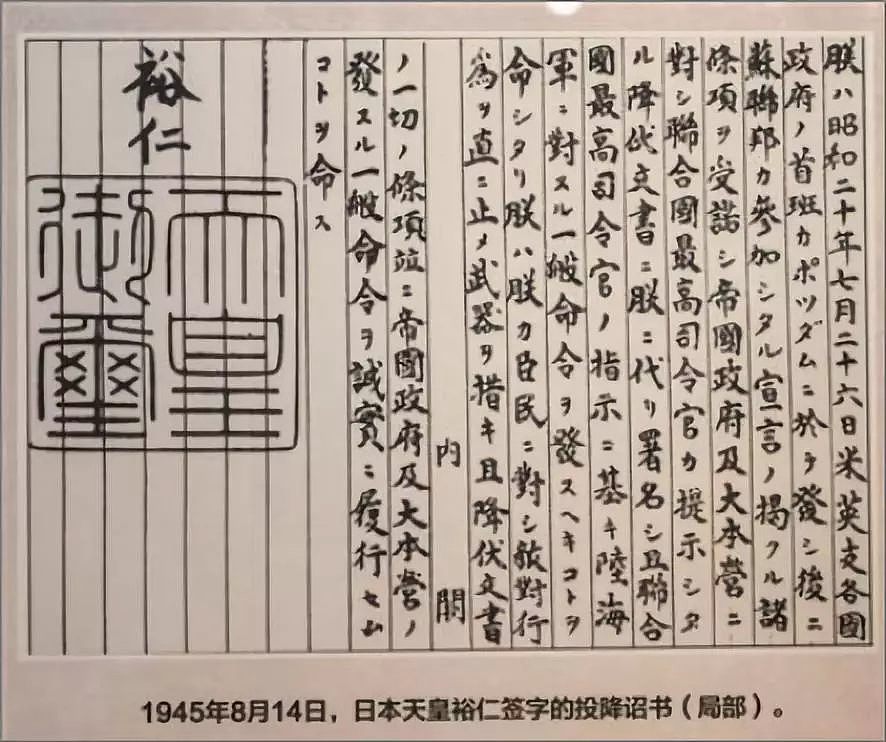 朕ハ昭和二十年七月二十六日米英支各國
政府ノ首班カポツダムニ於テ發シ後ニ
蘇聯邦カ參加シタル宣言ノ掲クル諸
條項ヲ受諾シ帝國政府及大本營ニ
對シ聯合國最高司令官カ提示シタ
ル降伏文書ニ朕ニ代リ署名シ且聯合
國最高司令官ノ指示ニ基キ陸海
軍ニ對スル一般命令ヲ發スヘキコトヲ
命シタリ朕ハ朕カ臣民ニ對シ敵對行
為ヲ直ニ止メ武器ヲ措キ且降伏文書
内閣
ノ一切ノ條項竝ニ帝國政府及大本營ノ
發スル一般命令ヲ誠實ニ履行セム
コトヲ命ス
裕仁
天皇
御璽
1945年8月14日，日本天皇裕仁签字的投降诏书（局部）。